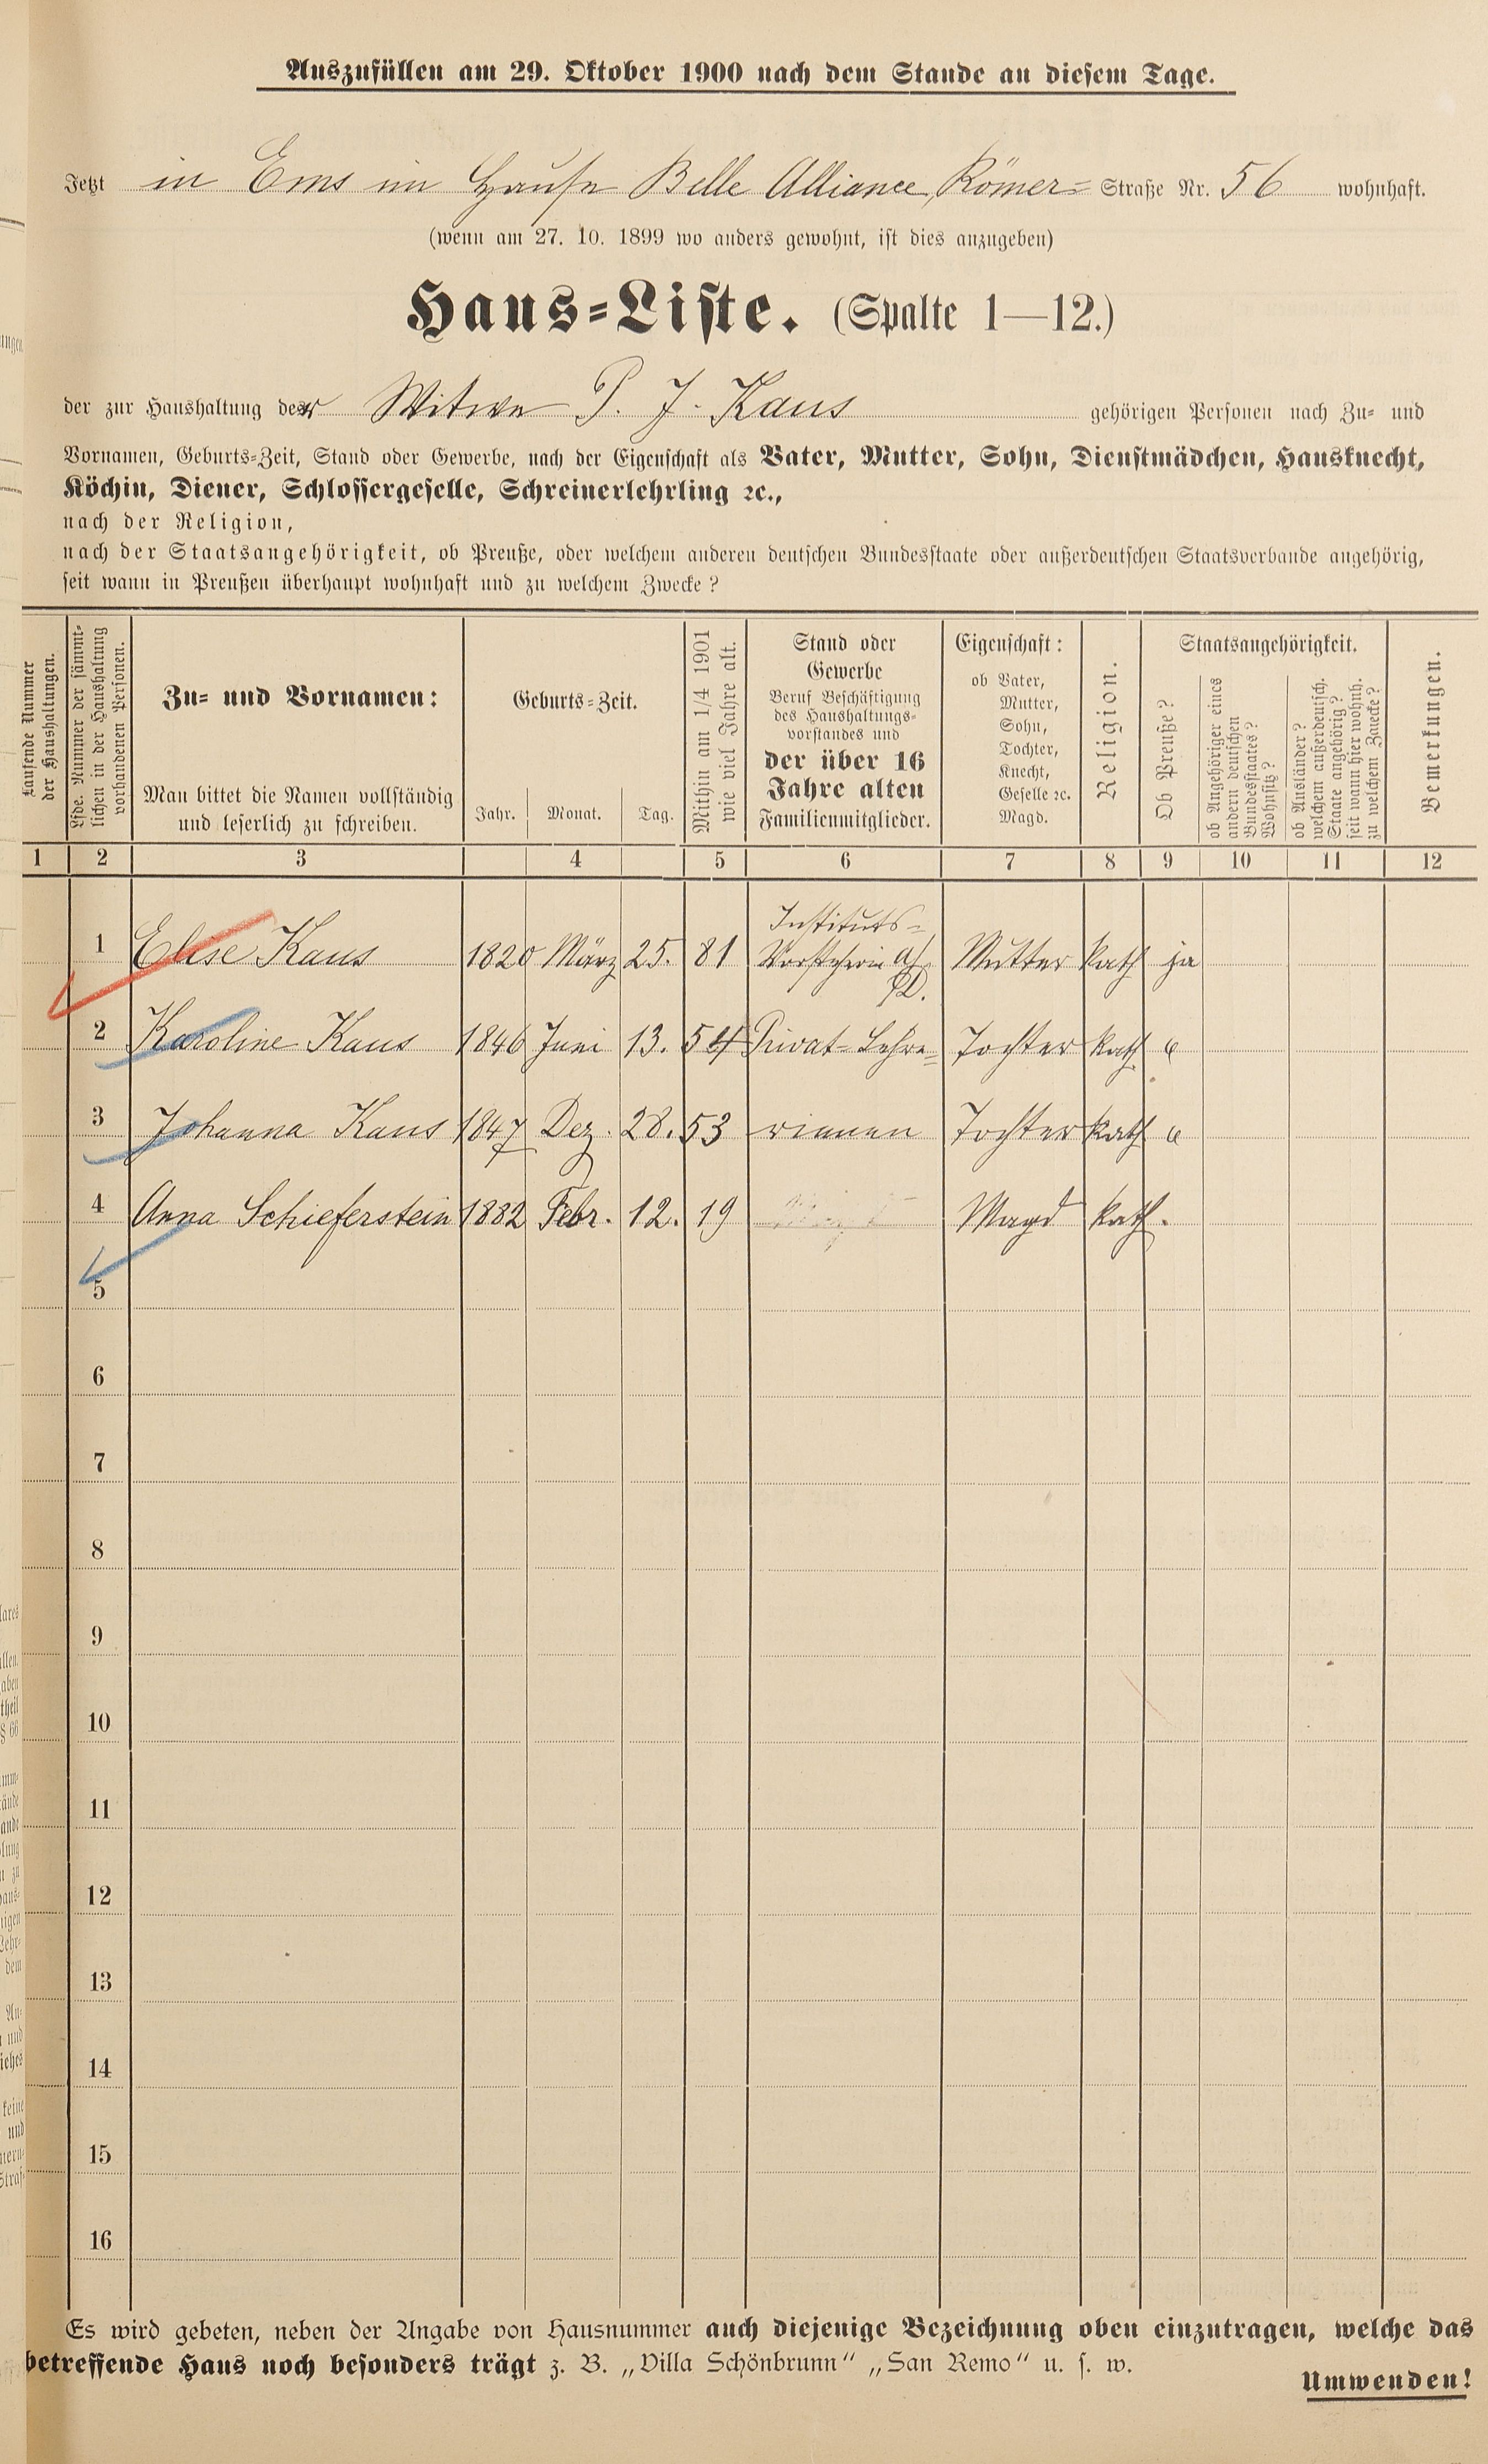 Auszufüllen am 29. Oktober 1900 nach dem Stande an diesem Tage.
Jetzt in Ems im Hause Belle Alliance, Römer= Straße Nr. 56 wohnhaft.
(wenn am 27. 10. 1899 wo anders gewohnt, ist dies anzugeben)
Haus=Liste. (Spalte 1—12.)
der zur Haushaltung der Witwe P. J. Kaus gehörigen Personen nach Zu= und
Vornamen, Geburts=Zeit, Stand oder Gewerbe, nach der Eigenschaft als Vater, Mutter, Sohn, Dienstmädchen, Hausknecht,
Köchin, Diener, Schlossergeselle, Schreinerlehrling ꝛc.,
nach der Religion,
nach der Staatsangehörigkeit, ob Preuße, oder welchem anderen deutschen Bundesstaate oder außerdeutschen Staatsverbande angehörig,
seit wann in Preußen überhaupt wohnhaft und zu welchem Zwecke?
Laufende Nummer
der Haushaltungen.
Lfde. Nummer der sämmt=
lichen in der Haushaltung
vorhandenen Personen.
Zu= und Vornamen:
Man bittet die Namen vollständig
und leserlich zu schreiben.
Geburts=Zeit.
Jahr. Monat. Tag.
Mithin am 1/4 1901
wie viel Jahre alt.
Stand oder
Gewerbe
Beruf Beschäftigung
des Haushaltungs=
vorstandes und
der über 16
Jahre alten
Familienmitglieder.
Eigenschaft:
ob Vater,
Mutter,
Sohn,
Tochter,
Knecht,
Geselle ꝛc.
Magd.
Religion.
Staatsangehörigkeit.
Ob Preuße?
ob Angehöriger eines
andern deutschen
Bundesstaates?
Wohnsitz?
ob Ausländer?
welchem außerdeutsch.
Staate angehörig?
seit wann hier wohnh.
zu welchem Zwecke?
Bemerkungen.
1 2 3 4 5 6 7 8 9 10 11 12
Instituts=
1 Elise Kaus 1820 März 25. 81 Vorsteherin a/ Mutter kath ja
D.
2 Karoline Kaus 1846 Juni 13. 54 Privat=Lehre= Tochter kath "
3 Johanna Kaus 1847 Dez. 28. 53 rinnen Tochter kath "
4 Anna Schieferstein 1882 Febr. 12. 19 Magd kath.
5
6
7
8
9
10
11
12
13
14
15
16
Es wird gebeten, neben der Angabe von Hausnummer auch diejenige Bezeichnung oben einzutragen, welche das
betreffende Haus noch besonders trägt z. B. „Villa Schönbrunn" „San Remo" u. s. w.
Umwenden!